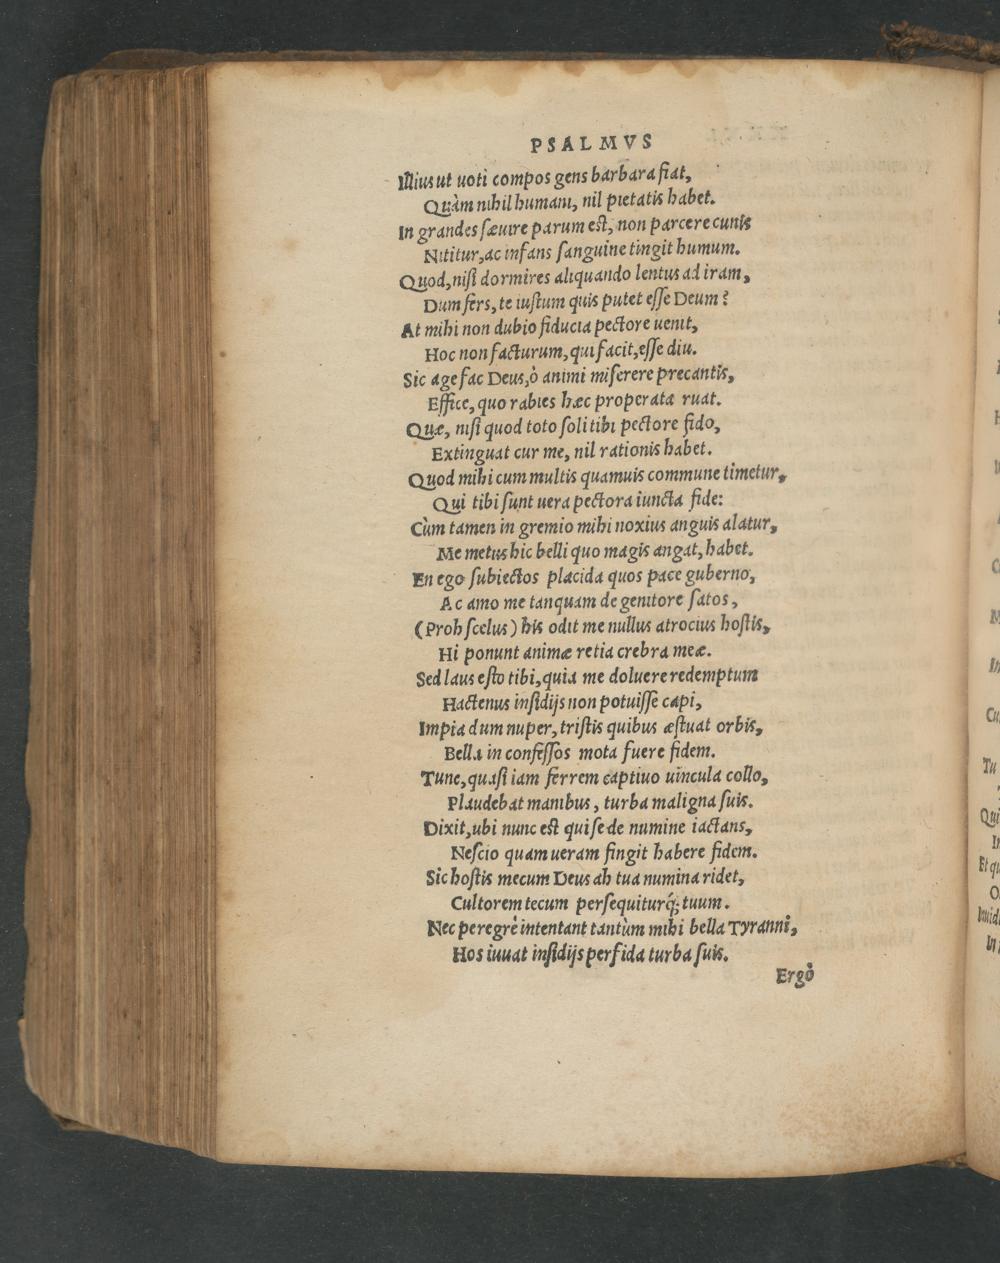 PSALMVS
Illius ut uoti compos gens barbara fiat,
Quàm nihil humani, nil pietatis habet.
In grandes sæuire parum est, non parcere cunis
Nititur, ac infans sanguine tingit humum.
Quod, nisi dormires aliquando lentus ad iram,
Dum fers, te iustum quis putet esse Deum?
At mihi non dubio fiducia pectore uenit,
Hoc non facturum, qui facit, esse diu.
Sic age fac Deus, ò animi miserere precantis,
Effice, quo rabies hæc properata ruat.
Quæ, nisi quod toto soli tibi pectore fido,
Extinguat cur me, nil rationis habet.
Quod mihi cum multis quamuis commune timetur,
Qui tibi sunt uera pectora iuncta fide:
Cùm tamen in gremio mihi noxius anguis alatur,
Me metus hic belli quo magis angat, habet.
En ego subiectos placida quos pace guberno,
Ac amo me tanquam de genitore satos,
(Proh scelus) his odit me nullus atrocius hostis,
Hi ponunt animæ retia crebra meæ.
Sed laus esto tibi, quia me doluere redemptum
Hactenus insidijs non potuisse capi,
Impia dum nuper, tristis quibus æstuat orbis,
Bella in confessos mota fuere fidem.
Tunc, quasi iam ferrem captiuo uincula collo,
Plaudebat manibus, turba maligna suis.
Dixit, ubi nunc est qui se de numine iactans,
Nescio quam ueram fingit habere fidem.
Sic hostis mecum Deus ah tua numina ridet,
Cultorem tecum persequiturq́; tuum.
Nec peregrè intentant tantùm mihi bella Tyranni,
Hos iuuat insidijs perfida turba suis.
Ergò